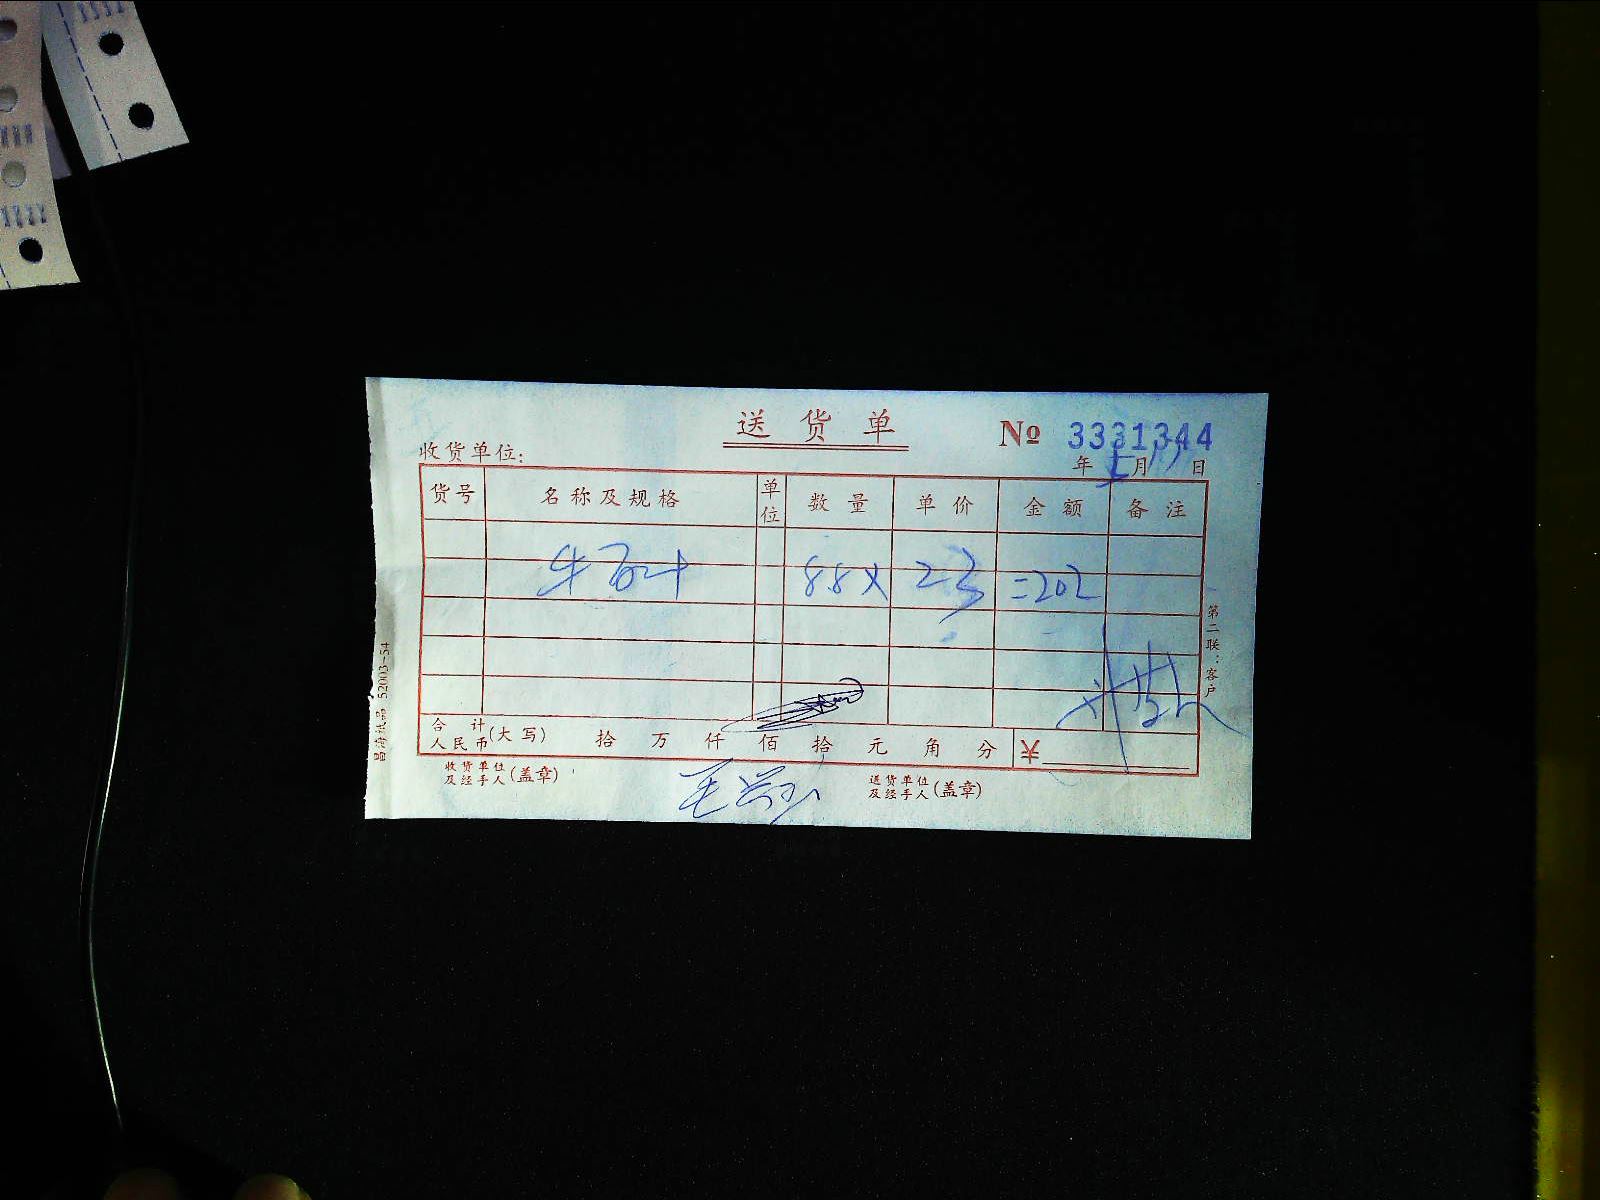 送货单 № 3331344
收货单位:
年 月 日
货号 名称及规格 单位 数量 单价 金额 备注
牛百叶 8.8X 23 =202
合计人民币(大写) 拾 万 仟 佰 拾 元 角 分 ¥
收货单位及经手人(盖章) 送货单位及经手人(盖章)
第二联:客户
52003-54